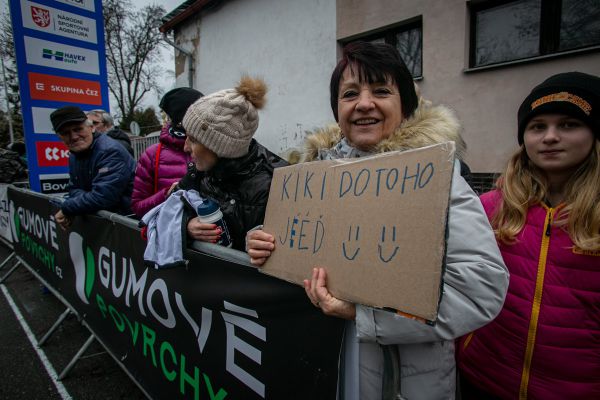 NÁRODNÍ
SPORTOVNÍ
AGENTURA
HAVEX
auto
SKUPINA ČEZ
KIKI DOTOHO
JÉĎ
GUMOVÉ
POVRCHY.CZ
GUMOVÉ
POVRCHY